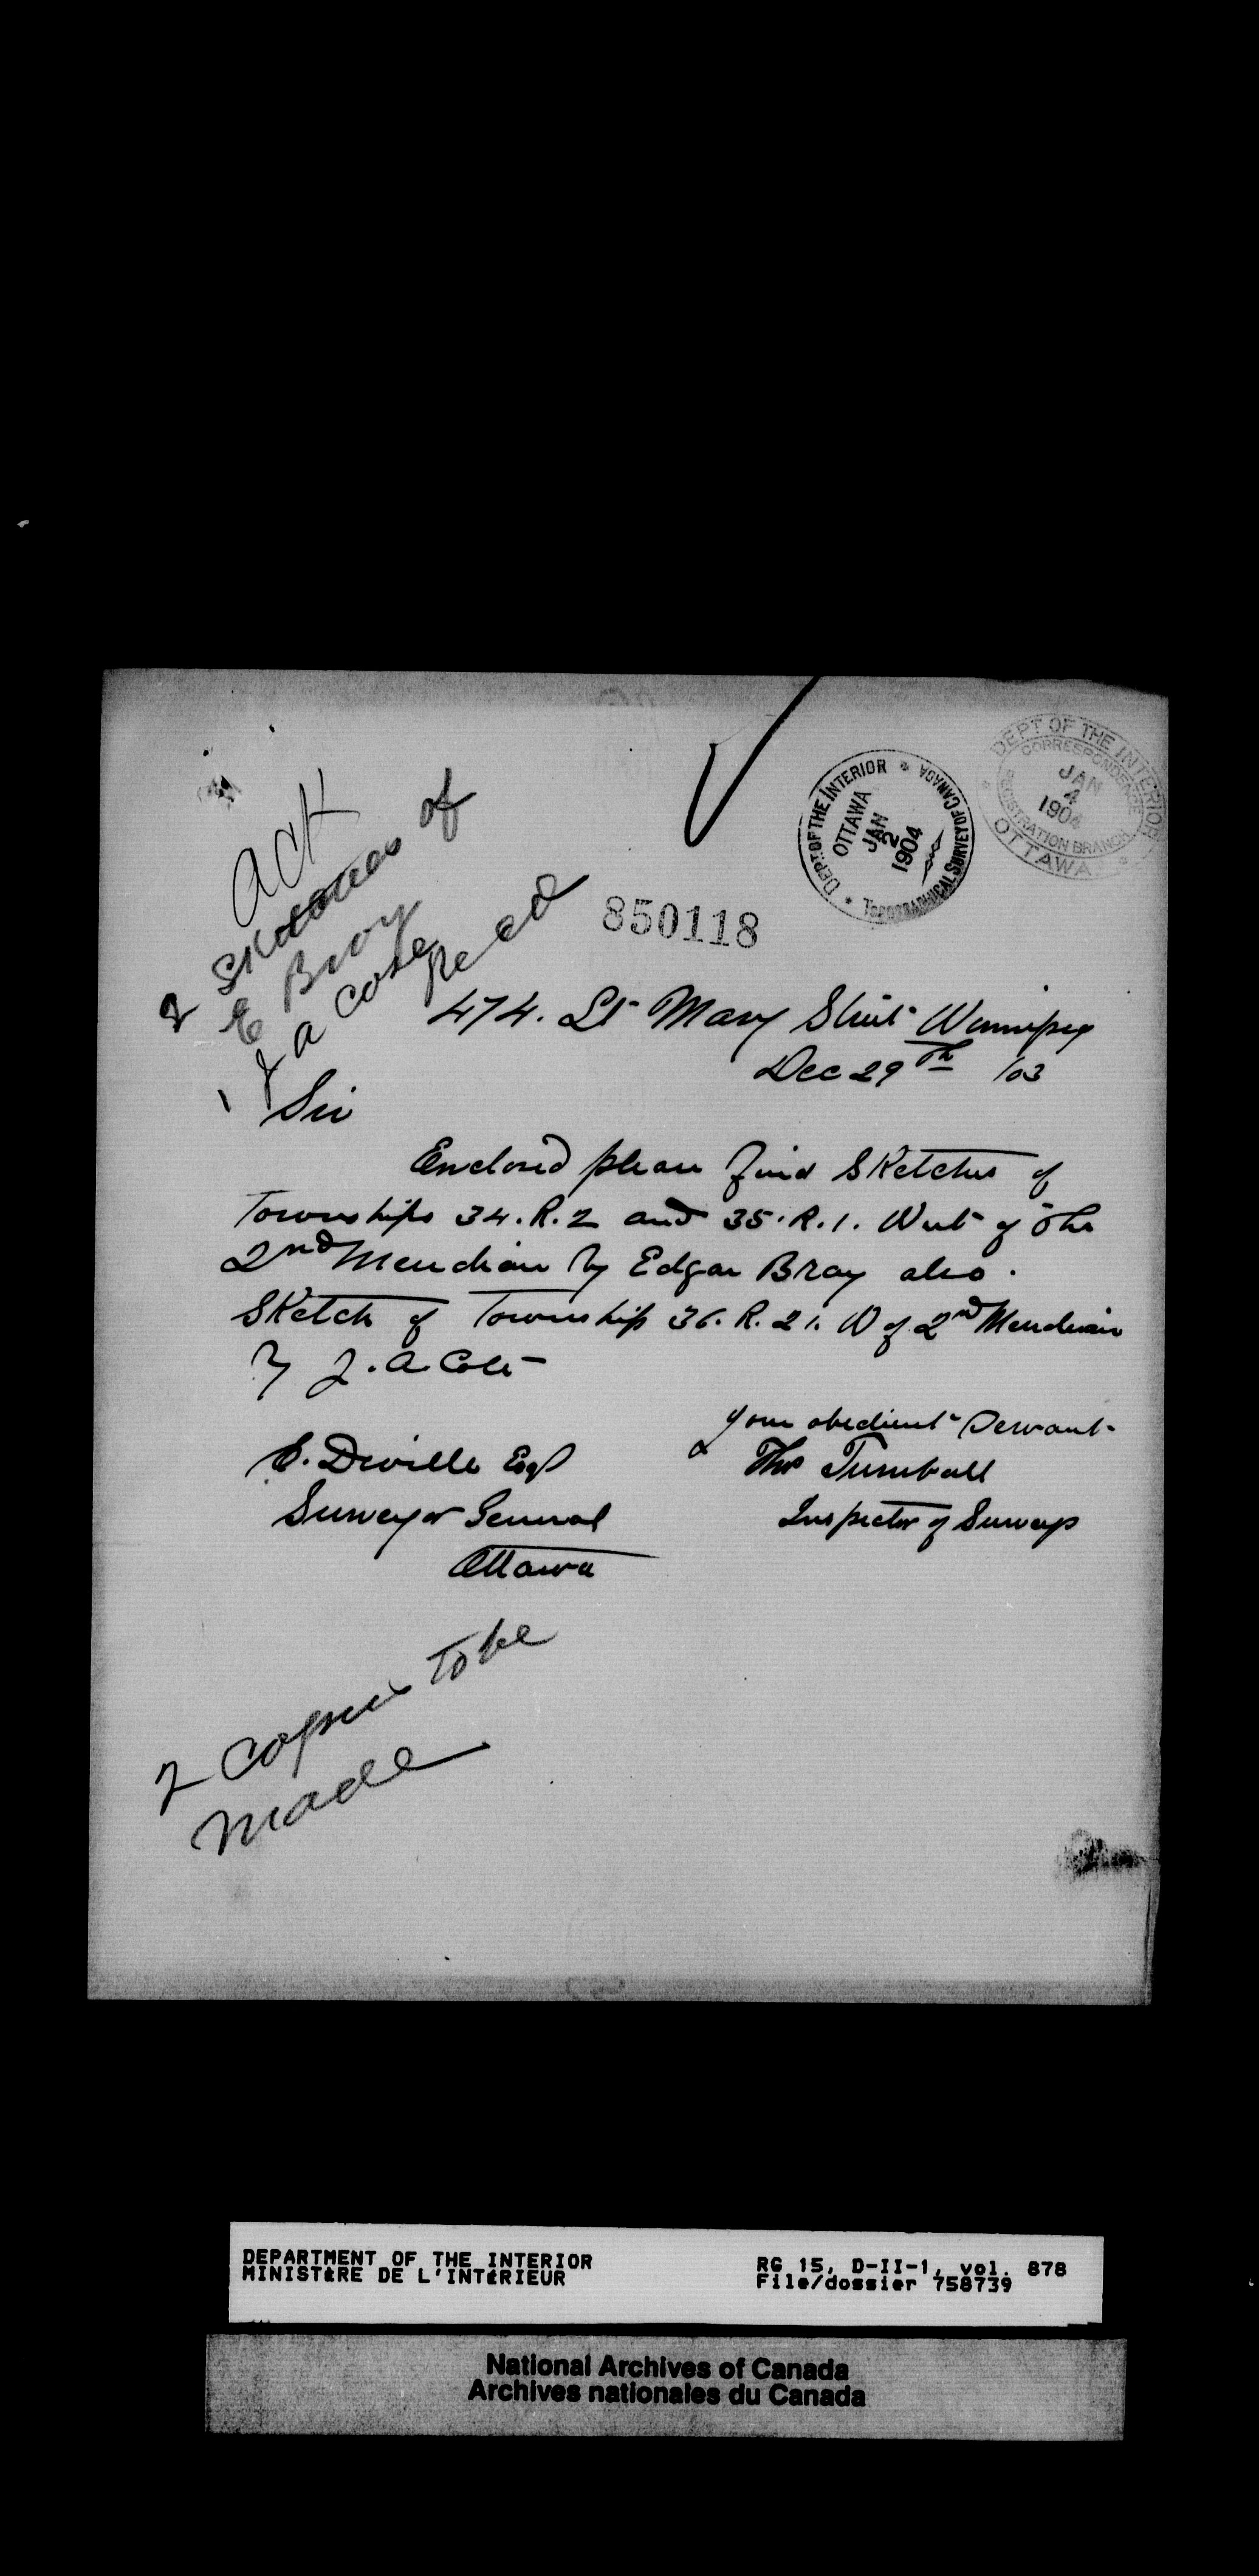 DEPT OF THE INTERIOR
CORRESPONDENCE
JAN
4
1904
REGISTRATION BRANCH
OTTAWA
DEPT. OF THE INTERIOR
OTTAWA
JAN
2
1904
TOPOGRAPHICAL SURVEY OF CANADA
Ack
2 Sketches of
E Bray
1 J A Cote
Recd
850118
474. St Mary Street Winnipeg
Dec 29th /03
Sir
Enclosed please find Sketches of
Townships 34. R. 2 and 35. R. 1. West of the
2nd Meridian by Edgar Bray also.
Sketch of Township 36. R. 21. W of 2nd Meridian
by J. A. Cote
your obedient Servant
E. Deville Esq
Thos Turnbull
Surveyor General
Inspector of Surveys
Ottawa
2 Copies to be
made
DEPARTMENT OF THE INTERIOR
MINISTÈRE DE L'INTÉRIEUR
RG 15, D-II-1, vol. 878
File/dossier 758739
National Archives of Canada
Archives nationales du Canada